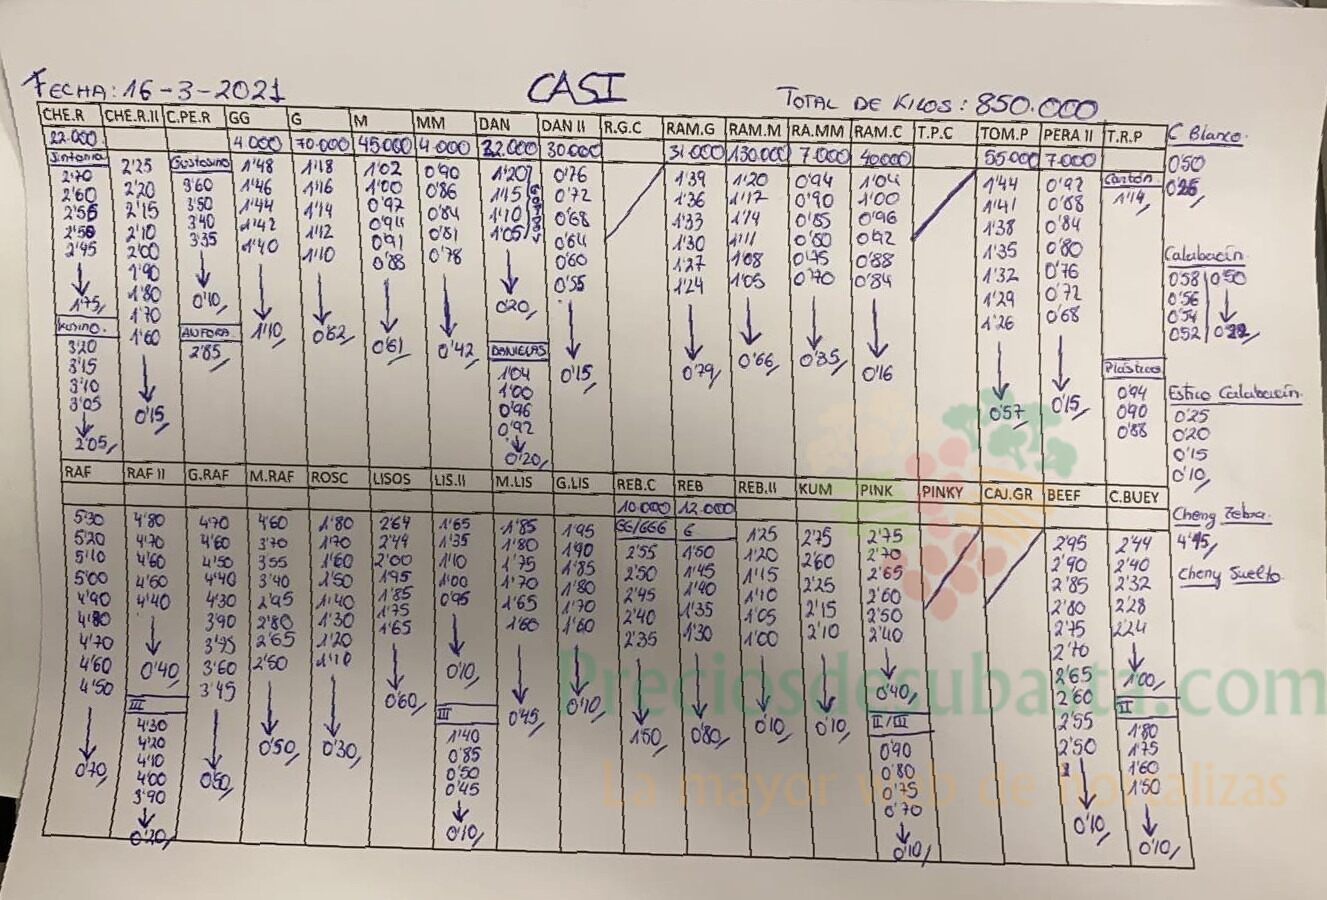 FECHA: 16-3-2021 CASI TOTAL DE KILOS: 850.000
CHE.R CHE.R.II C.PE.R GG G M MM DAN DAN II R.G.C RAM.G RAM.M RA.MM RAM.C T.P.C TOM.P PERA II T.R.P C Blanco.
22.000 4000 70.000 45000 4.000 22.000 30.000 31.000 130.000 7.000 40000 55.000 7.000
Sintonia 2'25 Gustosino 1'48 1'18 1'02 0'90 1'20 0'76 1'39 1'20 0'94 1'04 1'44 0'92 Cartón 0'50
2'70 2'20 3'60 1'46 1'16 1'00 0'86 1'15 0'72 1'36 1'17 0'90 1'00 1'41 0'88 1'14,
2'60 2'15 3'50 1'44 1'14 0'97 0'84 1'10 0'68 1'33 1'14 0'85 0'96 1'38 0'84
2'10 3'40 1'42 1'12 0'94 0'81 1'05 0'64 1'30 1'11 0'80 0'92 1'35 0'80
2'00 3'35 1'40 1'10 0'91 0'78 0'60 1'27 1'08 0'75 0'88 1'32 0'76 Calabacín.
2'45 1'90 0'88 0'55 1'24 1'05 0'70 0'84 1'29 0'72 0'58 0'50
1'80 0'10, 0'20, 1'26 0'68 0'56
1'75, 1'70 0'54
Kusino. 1'60 ANFORA 1'10, 0'62, 0'61, 0'42, DANIELAS 0'15, 0'79, 0'66, 0'35, 0'16 0'52
3'20 2'85, 1'04 Plástico
3'15 1'00 0'94 Estico Calabacín.
3'10 0'96 0'90 0'25
3'05 0'15, 0'92 0'57, 0'15, 0'88 0'20
2'05, 0'20, 0'15
0'10,
RAF RAF II G.RAF M.RAF ROSC LISOS LIS.II M.LIS G.LIS REB.C REB REB.II KUM PINK PINKY CAJ.GR BEEF C.BUEY
10.000 12.000 Cheng Zebra.
GG/GGG G
5'30 4'80 4'70 4'60 1'80 2'64 1'65 1'85 1'95 2'55 1'50 1'25 2'75 2'75 2'95 2'44
5'20 4'70 4'60 3'70 1'70 2'44 1'35 1'80 1'90 2'50 1'45 1'20 2'60 2'70 2'90 2'40 Cheny Suelto.
5'10 4'60 4'50 3'55 1'60 2'00 1'10 1'75 1'85 2'45 1'40 1'15 2'25 2'65 2'85 2'32
5'00 4'60 4'40 3'40 1'50 1'95 1'00 1'70 1'80 2'40 1'35 1'10 2'15 2'60 2'80 2'28
4'90 4'40 4'30 1'40 1'85 0'95 1'65 1'70 2'35 1'30 1'05 2'10 2'50 2'75 2'24
4'80 3'90 2'80 1'30 1'75 1'60 1'60 1'00 2'40 2'70
4'70 2'65 1'20 1'65 2'65
4'60 0'40, 3'60 2'50 1'10 0'10, 2'60 1'00,
4'50 III 3'45 0'60, III 0'45, 0'10, 1'50, 0'80, 0'10, 0'10, 0'40, 2'55 II
4'30 1'40 II/III 2'50 1'80
4'20 0'50, 0'30, 0'85 0'90 1'75
0'70, 4'10 0'50, 0'50 0'80 1'60
4'00 0'45 0'75 1'50
3'90 0'70 0'10,
0'20, 0'10, 0'10, 0'10,
Preciosdesubasta.com
La mayor web de hortalizas